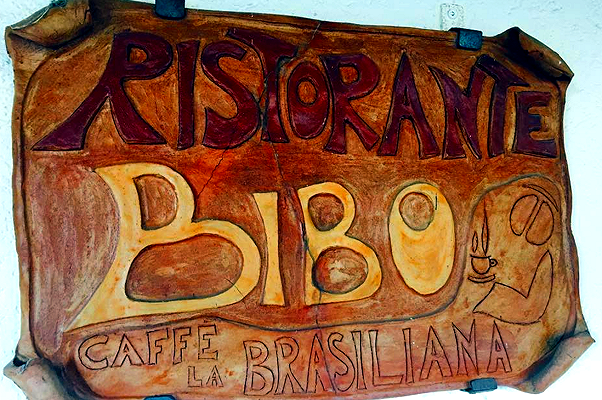 RISTORANTE
BIBO
CAFFE
LA BRASILIANA